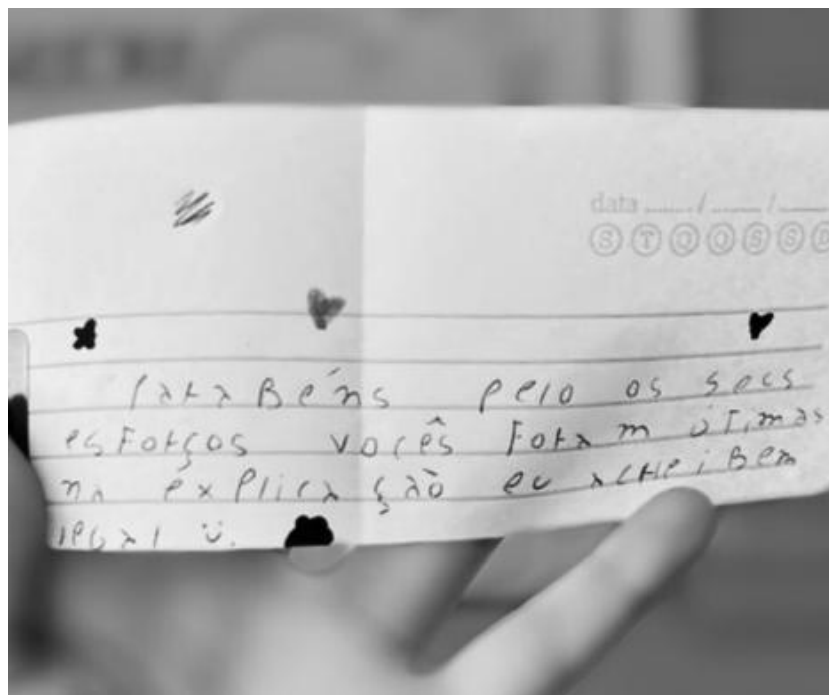 data ..../..../....
S T Q Q S S D
ParaBéns pelo os seus
esForços vocês Foram ótimas
na explicação eu acHei Bem
legal ü.